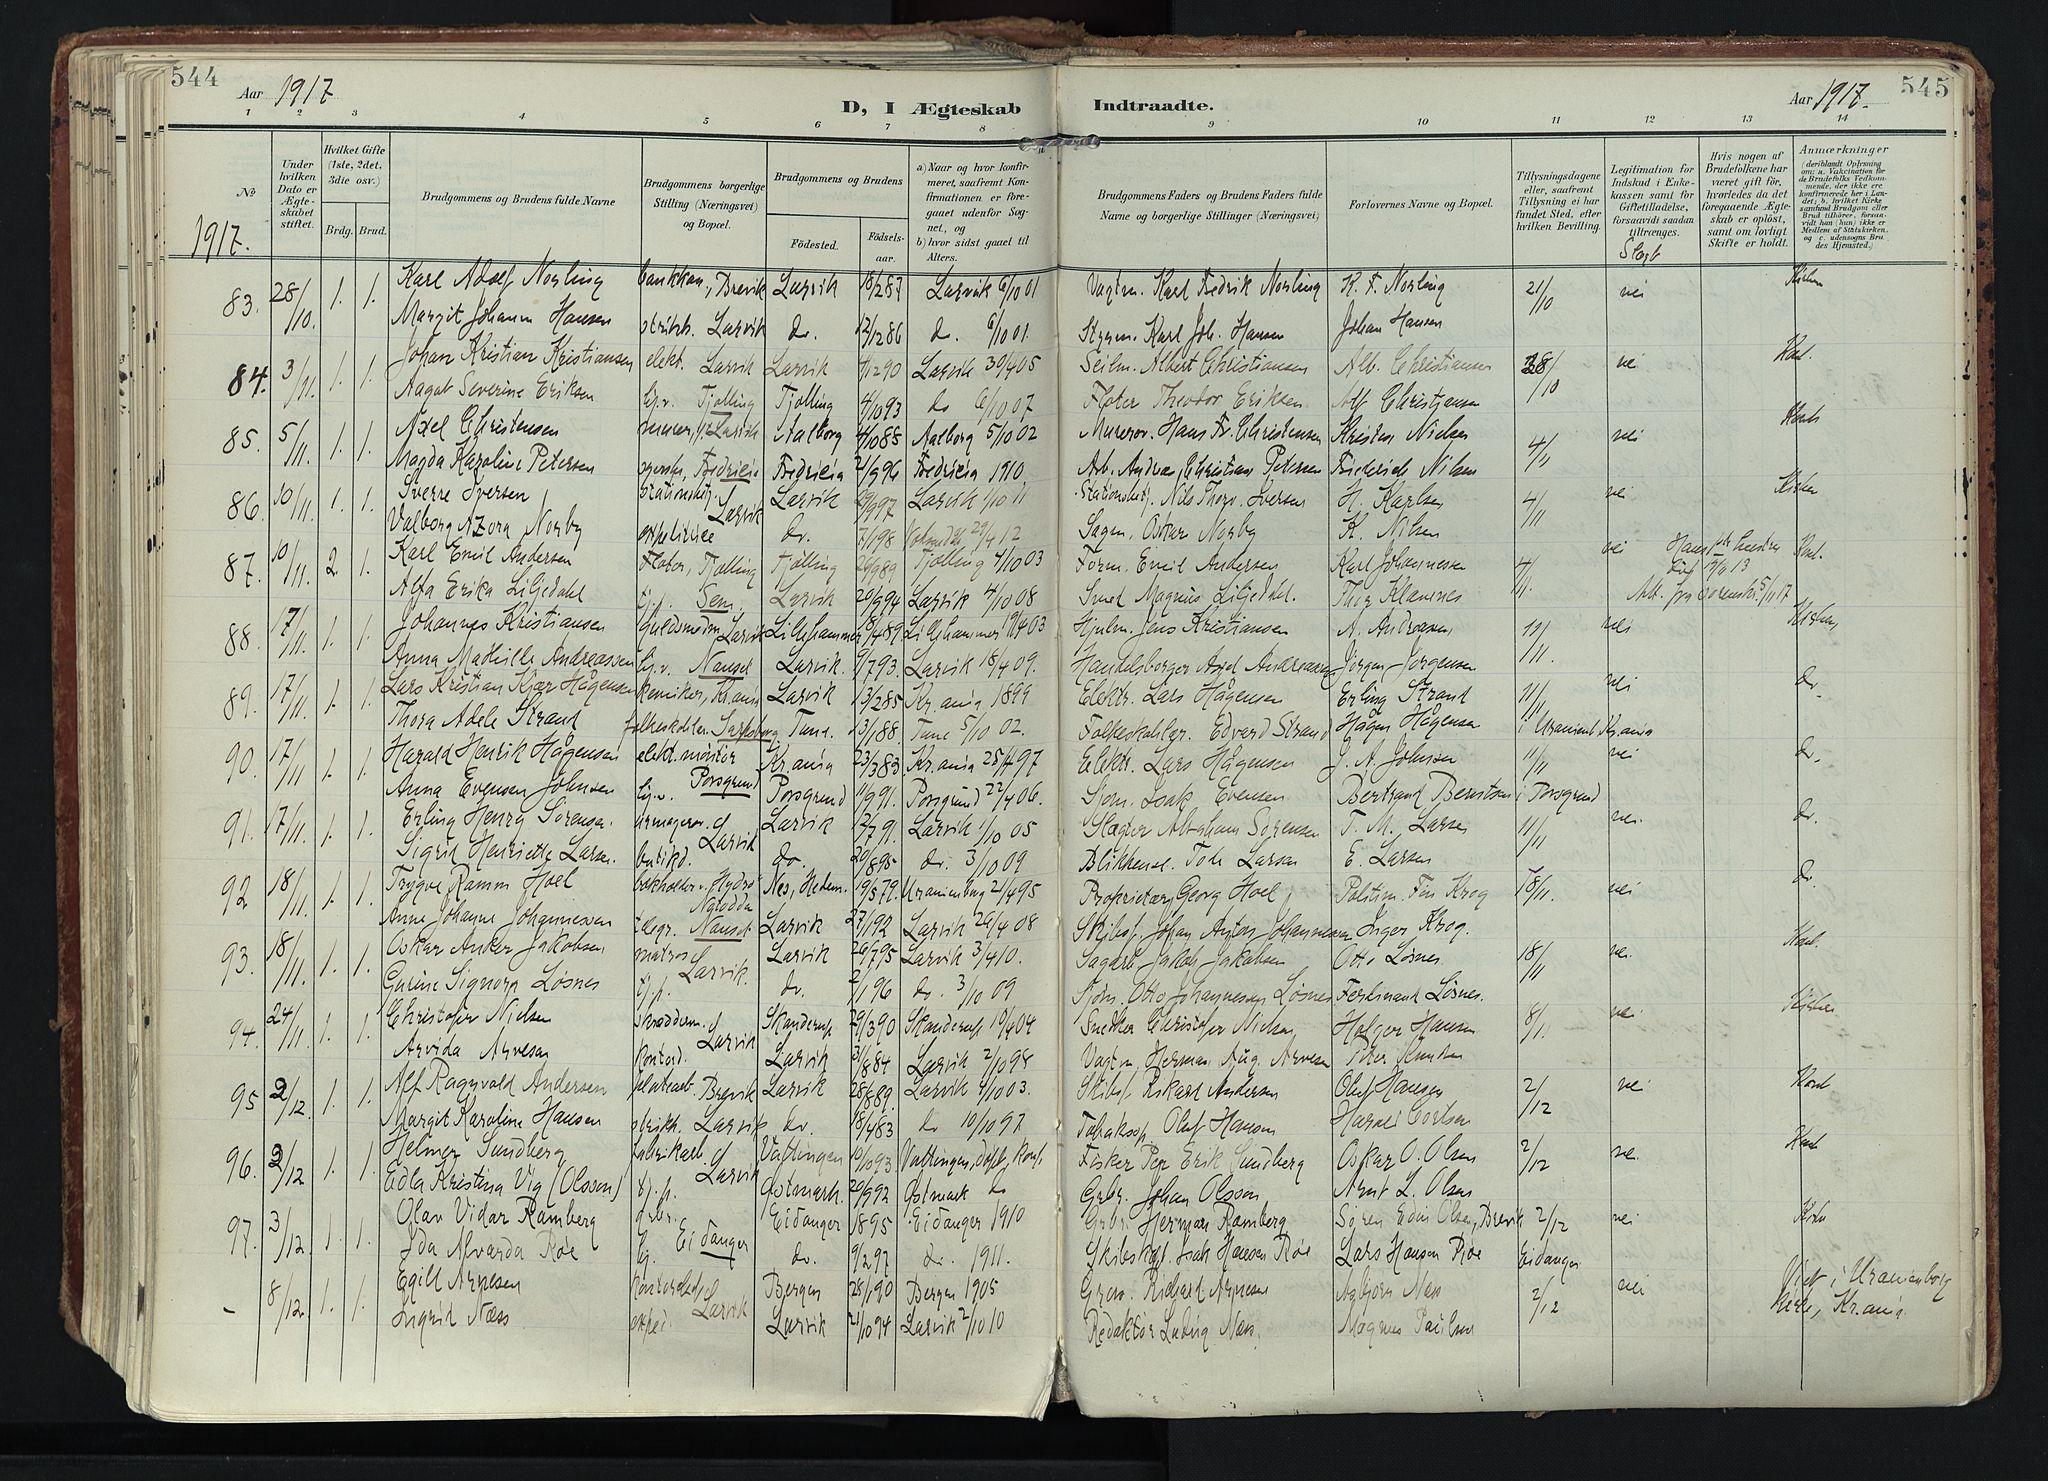 544
Aar 1917
D, I Ægteskab
Indtraadte.
Aar 1917.
545
1 2 3 4 5 6 7 8 9 10 11 12 13 14
No
Under hvilken Dato er Ægteskabet stiftet.
Hvilket Gifte (1ste, 2det, 3die osv.)
Brdg. Brud.
Brudgommens og Brudens fulde Navne
Brudgommens borgerlige Stilling (Næringsvei) og Bopæl.
Brudgommens og Brudens
Fødested.
Fødselsaar.
a) Naar og hvor konfirmeret, saafremt Konfirmationen er foregaaet udenfor Sognet, og
b) hvor sidst gaaet til Alters.
Brudgommens Faders og Brudens Faders fulde Navne og borgerlige Stillinger (Næringsvei)
Forlovernes Navne og Bopæl.
Tillysningsdagene eller, saafremt Tillysning ei har fundet Sted, efter hvilken Bevilling.
Legitimation for Indskud i Enkekassen samt for Giftetilladelse, forsaavidt saadan tiltrænges.
Hvis nogen af Brudefolkene har været gift før, hvorledes da det foregaaende Ægteskab er opløst, samt om lovligt Skifte er holdt.
Anmærkninger
(deriblandt Oplysning om: a. Vaccination for de Brudefolks Vedkommende, der ikke ere konfirmerede her i Landet; b. hvilket Kirkesamfund Brudgom eller Brud tilhører, forsaavidt han (hun) ikke er Medlem af Statskirken, og c. udensogns Brudes Hjemsted.)
1917.
83. 28/10. 1. 1. Karl Adolf Norling Brevik Larvik 18/2 87 Larvik 6/10 01 Vagtm. Karl Fredrik Norling K. F. Norling 21/10 nei
Margit Johanne Hansen Larvik do. 12/12 86 do. 6/10 01. Styrm. Karl Joh. Hansen Johan Hansen
84. 3/11. 1. 1. Johan Kristian Kristiansen elekt. Larvik Larvik Larvik 30/4 05 Albert Christiansen Alb. Christiansen 28/10 nei
Aagot Severine Eriksen Tjølling Tjølling 4/10 93 do 6/10 07 Fløter Theodor Eriksen Alf Christjansen
85. 5/11. 1. 1. Axel Christensen murer, Larvik Aalborg 4/10 88 Aalborg 5/10 02 Hans Fr. Christensen Kristen Nielsen 4/11 nei
Magda Karoline Petersen Fredricia Fredricia 21/9 96 Fredricia 1910. Arb. Andreas Christian Petersen Frederich Nilsen
86. 10/11. 1. 1. Sverre Iversen Larvik Larvik 29/9 97 Larvik 1/10 11 Nils Thorv. Iversen H. Karlsen 4/11 nei Kirken
Valborg Azora Norby do. 7/1 98 29/4 12 Oskar Norby K. Nilsen
87. 10/11. 2. 1. Karl Emil Andersen Fløter, Tjølling Tjølling 29/9 89 Tjølling 4/10 03 Form. Emil Andersen Karl Johannessen 4/11. nei
Alfa Erika Liljedahl tj.p. Sem. Larvik 20/9 94 Larvik 4/10 08 Smed Magnus Liljedahl. Thor Klavenes
88. 17/11. 1. 1. Johannes Kristiansen Guldsmedm. Larvik Lillehammer 18/4 89 Lillehammer 19/4 03 Hjulm. Jens Kristiansen A. Andreasen 11/11. nei Kirken
Anna Mathilde Andreassen Nanset Larvik. 9/7 93. Larvik 18/4 09. Handelsborger Axel Andreassen Jørgen Jørgensen
89. 17/11. 1. 1. Lars Kristian Kjær Hågensen kemiker, Kr.ania Larvik 13/2 85 Kr.ania 1899 Elektr. Lars Hågensen Erling Strand 11/11 nei do.
Thora Adele Strand Sarpsborg Tune. 13/1 88. Tune 5/10 02. Edvard Strand Hågen Hågensen i Uranienb. Kr.ania
90. 17/11 1. 1. Harald Henrik Hågensen elekt. montør Kr.ania 23/3 83 Kr.ania 25/4 97 Elektr. Lars Hågensen J. A. Johnsen 11/11 nei do.
Anna Evensen Johnsen Porsgrund Porsgrund 11/9 91. Porsgrund 22/4 06. Sjøm. Isak Evensen Bertrand Berntsen i Porsgrund
91. 17/11. 1. 1. Erling Henry Sørensen Larvik Larvik 12/7 91. Larvik 1/10 05 Slagter Abraham Sørensen T. M. Larsen 11/11 nei do.
Sigrid Henriette Larsen. butikd. do. 20/8 95 do. 3/10 09 Blikkensl. Tode Larsen E. Larsen
92 18/11. 1. 1. Trygve Ramm Hoel bokholder v. Hydro Notodda Nes, Hedem. 19/5 79. Uranienborg 21/4 95 Proprietær Georg Hoel Politim. Fin Krog 18/11. nei do.
Anne Johanne Johannessen Nanset Larvik 27/1 92 Larvik 26/4 08 Johan Anton Johannessen Inger Krog.
93. 18/11. 1. 1. Oskar Anker Jakobsen matros Larvik. Larvik 26/7 95 Larvik 3/4 10. Sagarb. Jakob Jakobsen Otto Løsnes 18/11 nei.
Gurine Signora Løsnes tj.p. do. 2/1 96 do. 3/10 09 Sjøm. Otto Johannessen Løsnes Ferdinand Løsnes.
94. 24/11 1. 1. Christofer Nielsen skræddem. Larvik Skanderup 29/3 90 Skanderup 10/4 04 Snedker Christofer Nielsen Holger Hansen 8/11. nei
Arvida Arvesen kontord. Larvik 31/8 84 Larvik 2/10 98 Vagtm. Herman Aug. Arvesen Peter Knudsen
95 2/12. 1. 1. Alf Ragnvald Andersen Brevik Larvik 28/8 89. Larvik 4/10 03. Rikard Andersen Oluf Hansen 2/12 nei
Margit Karoline Hansen Larvik do. 18/4 83 do 10/10 97 Oluf Hansen
96. 2/12 1. 1. Helmer Sundberg fabrikarb. Larvik Vattingen 10/10 93 Vattingen, Fisker Per Erik Sundberg Oskar O. Olsen 2/12 nei.
Edla Kristina Vig (Olsson) tj.p. Østmark. 20/9 92 Østmark do Grbr. Johan Olsson Arnt L. Olsen
97. 3/12. 1. 1. Olav Vidar Ramberg grbr. Eidanger Eidanger 1895 Eidanger 1910 Grbr. Herman Ramberg Søren Edin Olsen, Brevik 2/12 nei
Ida Alvarda Røe do. 9/2 97 do. 1911. Isak Hansen Røe Lars Hansen Røe Eidanger
- 8/12. 1. 1. Egill Arnesen Larvik Bergen 28/1 90 Bergen 1905 Rikard Arnesen Asbjørn Næss 2/12 nei Viet i Uranienborg Kirke, Kr.ania
Ingrid Næss exped. Larvik 21/10 94 Larvik 2/10 10 Redaktør Ludvig Næss. Magnus Paulsen